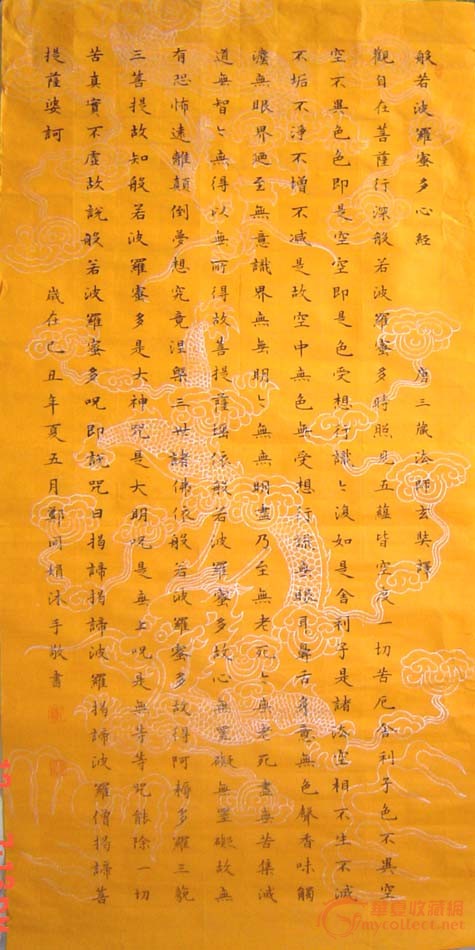 般若波羅蜜多心經 唐三藏法師玄奘譯
觀自在菩薩行深般若波羅蜜多時照見五蘊皆空度一切苦厄舍利子色不異空
空不異色色即是空空即是色受想行識亦復如是舍利子是諸法空相不生不滅
不垢不淨不增不減是故空中無色無受想行識無眼耳鼻舌身意無色聲香味觸
灋無眼界廼至無意識界無無明亦無無明盡乃至無老死亦無老死盡無苦集滅
道無智亦無得以無所得故菩提薩埵依般若波羅蜜多故心無罣礙無罣礙故無
有恐怖遠離顛倒夢想究竟涅槃三世諸佛依般若波羅蜜多故得阿耨多羅三藐
三菩提故知般若波羅蜜多是大神咒是大明咒是無上咒是無等等咒能除一切
苦真實不虛故說般若波羅蜜多咒即說咒曰揭諦揭諦波羅揭諦波羅僧揭諦菩
提薩婆訶 歲在己丑年夏五月鄭同娟沐手敬書
華夏收藏網
mycollect.net